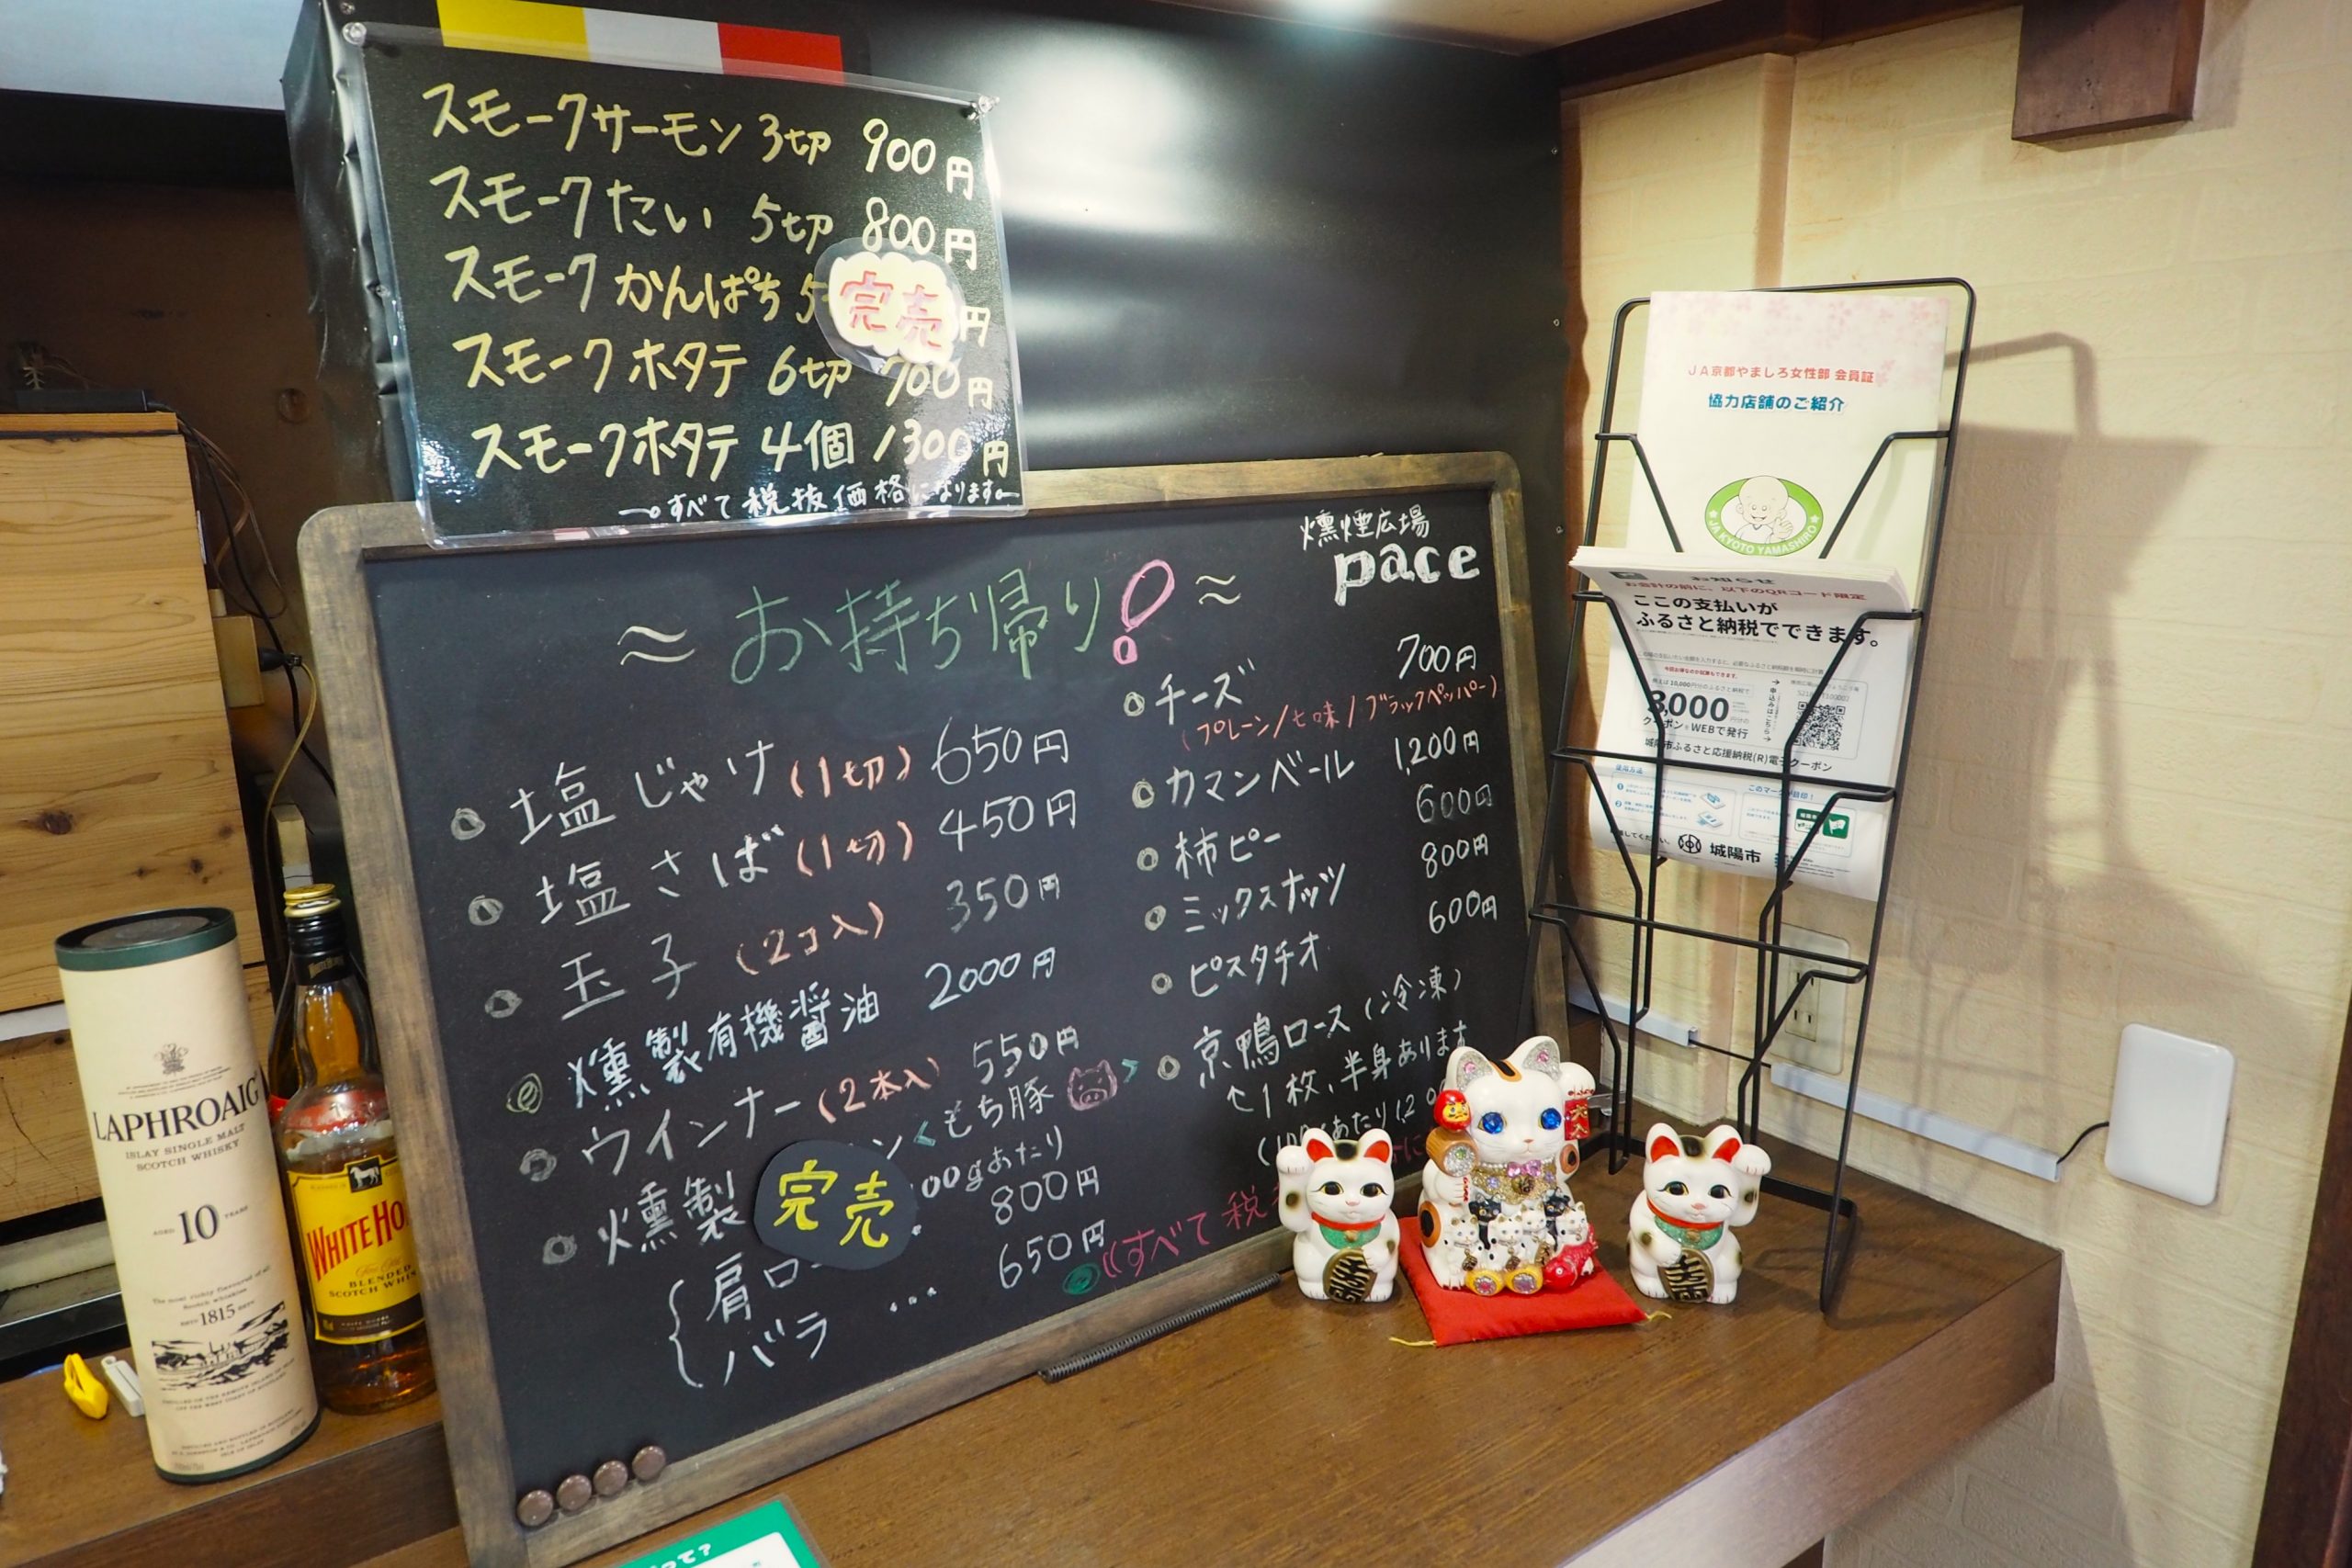 スモークサーモン 3切 900円
スモークたい 5切 800円
スモーク かんぱち 5 円
完売
スモーク ホタテ 6切 700円
スモークホタテ 4個 1300円
すべて税抜価格になります
燻煙広場
pace
≈ お持ち帰り! ≈
塩じゃけ (1切) 650円
塩さば (1切) 450円
玉子 (2コ入) 350円
燻製有機醤油 2000円
ウインナー (2本入) 550円
燻製 ン <もち豚 >
完売
00gあたり
肩ロ ... 800円
バラ ... 650円
チーズ 700円
(プレーン/七味/ブラックペッパー)
カマンベール 1,200円
柿ピー 600円
ミックスナッツ 800円
ピスタチオ 600円
京鴨ロース (冷凍)
↑1枚、半身あります
(100gあたり
((すべて 税
LAPHROAIG
ISLAY SINGLE MALT
SCOTCH WHISKY
AGED 10 YEARS
The most richly flavoured of all
Scotch whiskies
ESTD 1815
WHITE HO
BLENDED
SCOTCH WHIS
JA京都やましろ女性部 会員証
協力店舗のご紹介
JA KYOTO YAMASHIRO
お知らせ
お会計の前に、以下のQRコード限定
ここの支払いが
ふるさと納税でできます。
3000
クーポンをWEBで発行
申込みはこちら
城陽市ふるさと応援納税(R)電子クーポン
使用方法
このマークが目印!
城陽市
って?